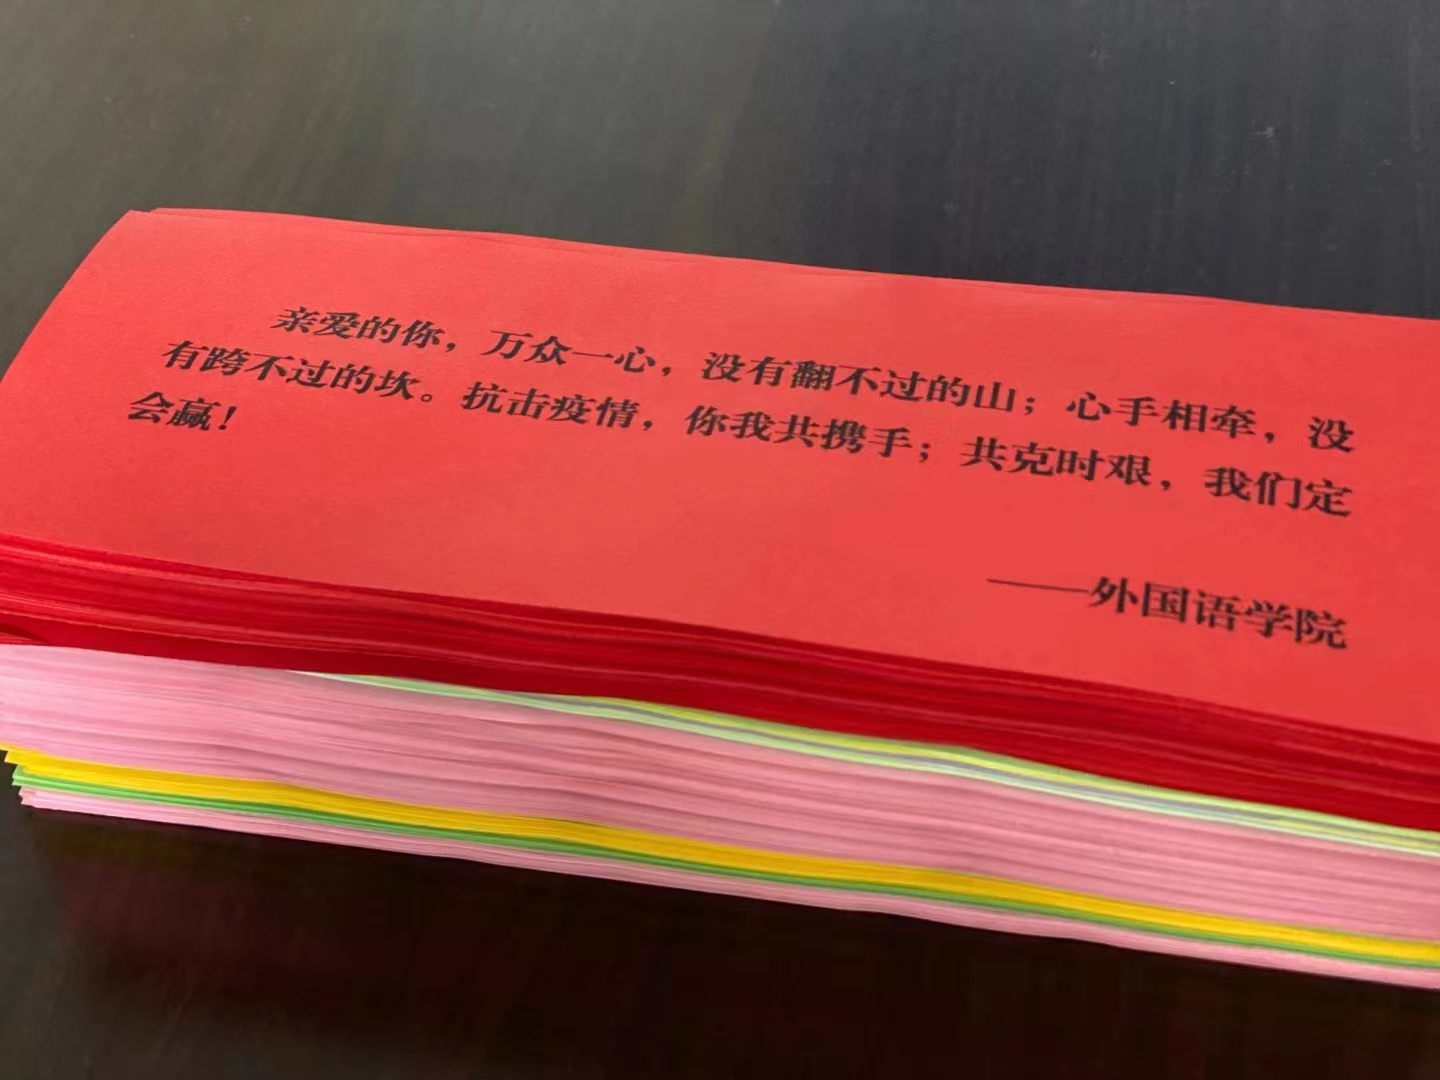 亲爱的你，万众一心，没有翻不过的山；心手相牵，没
有跨不过的坎。抗击疫情，你我共携手；共克时艰，我们定
会赢！
——外国语学院